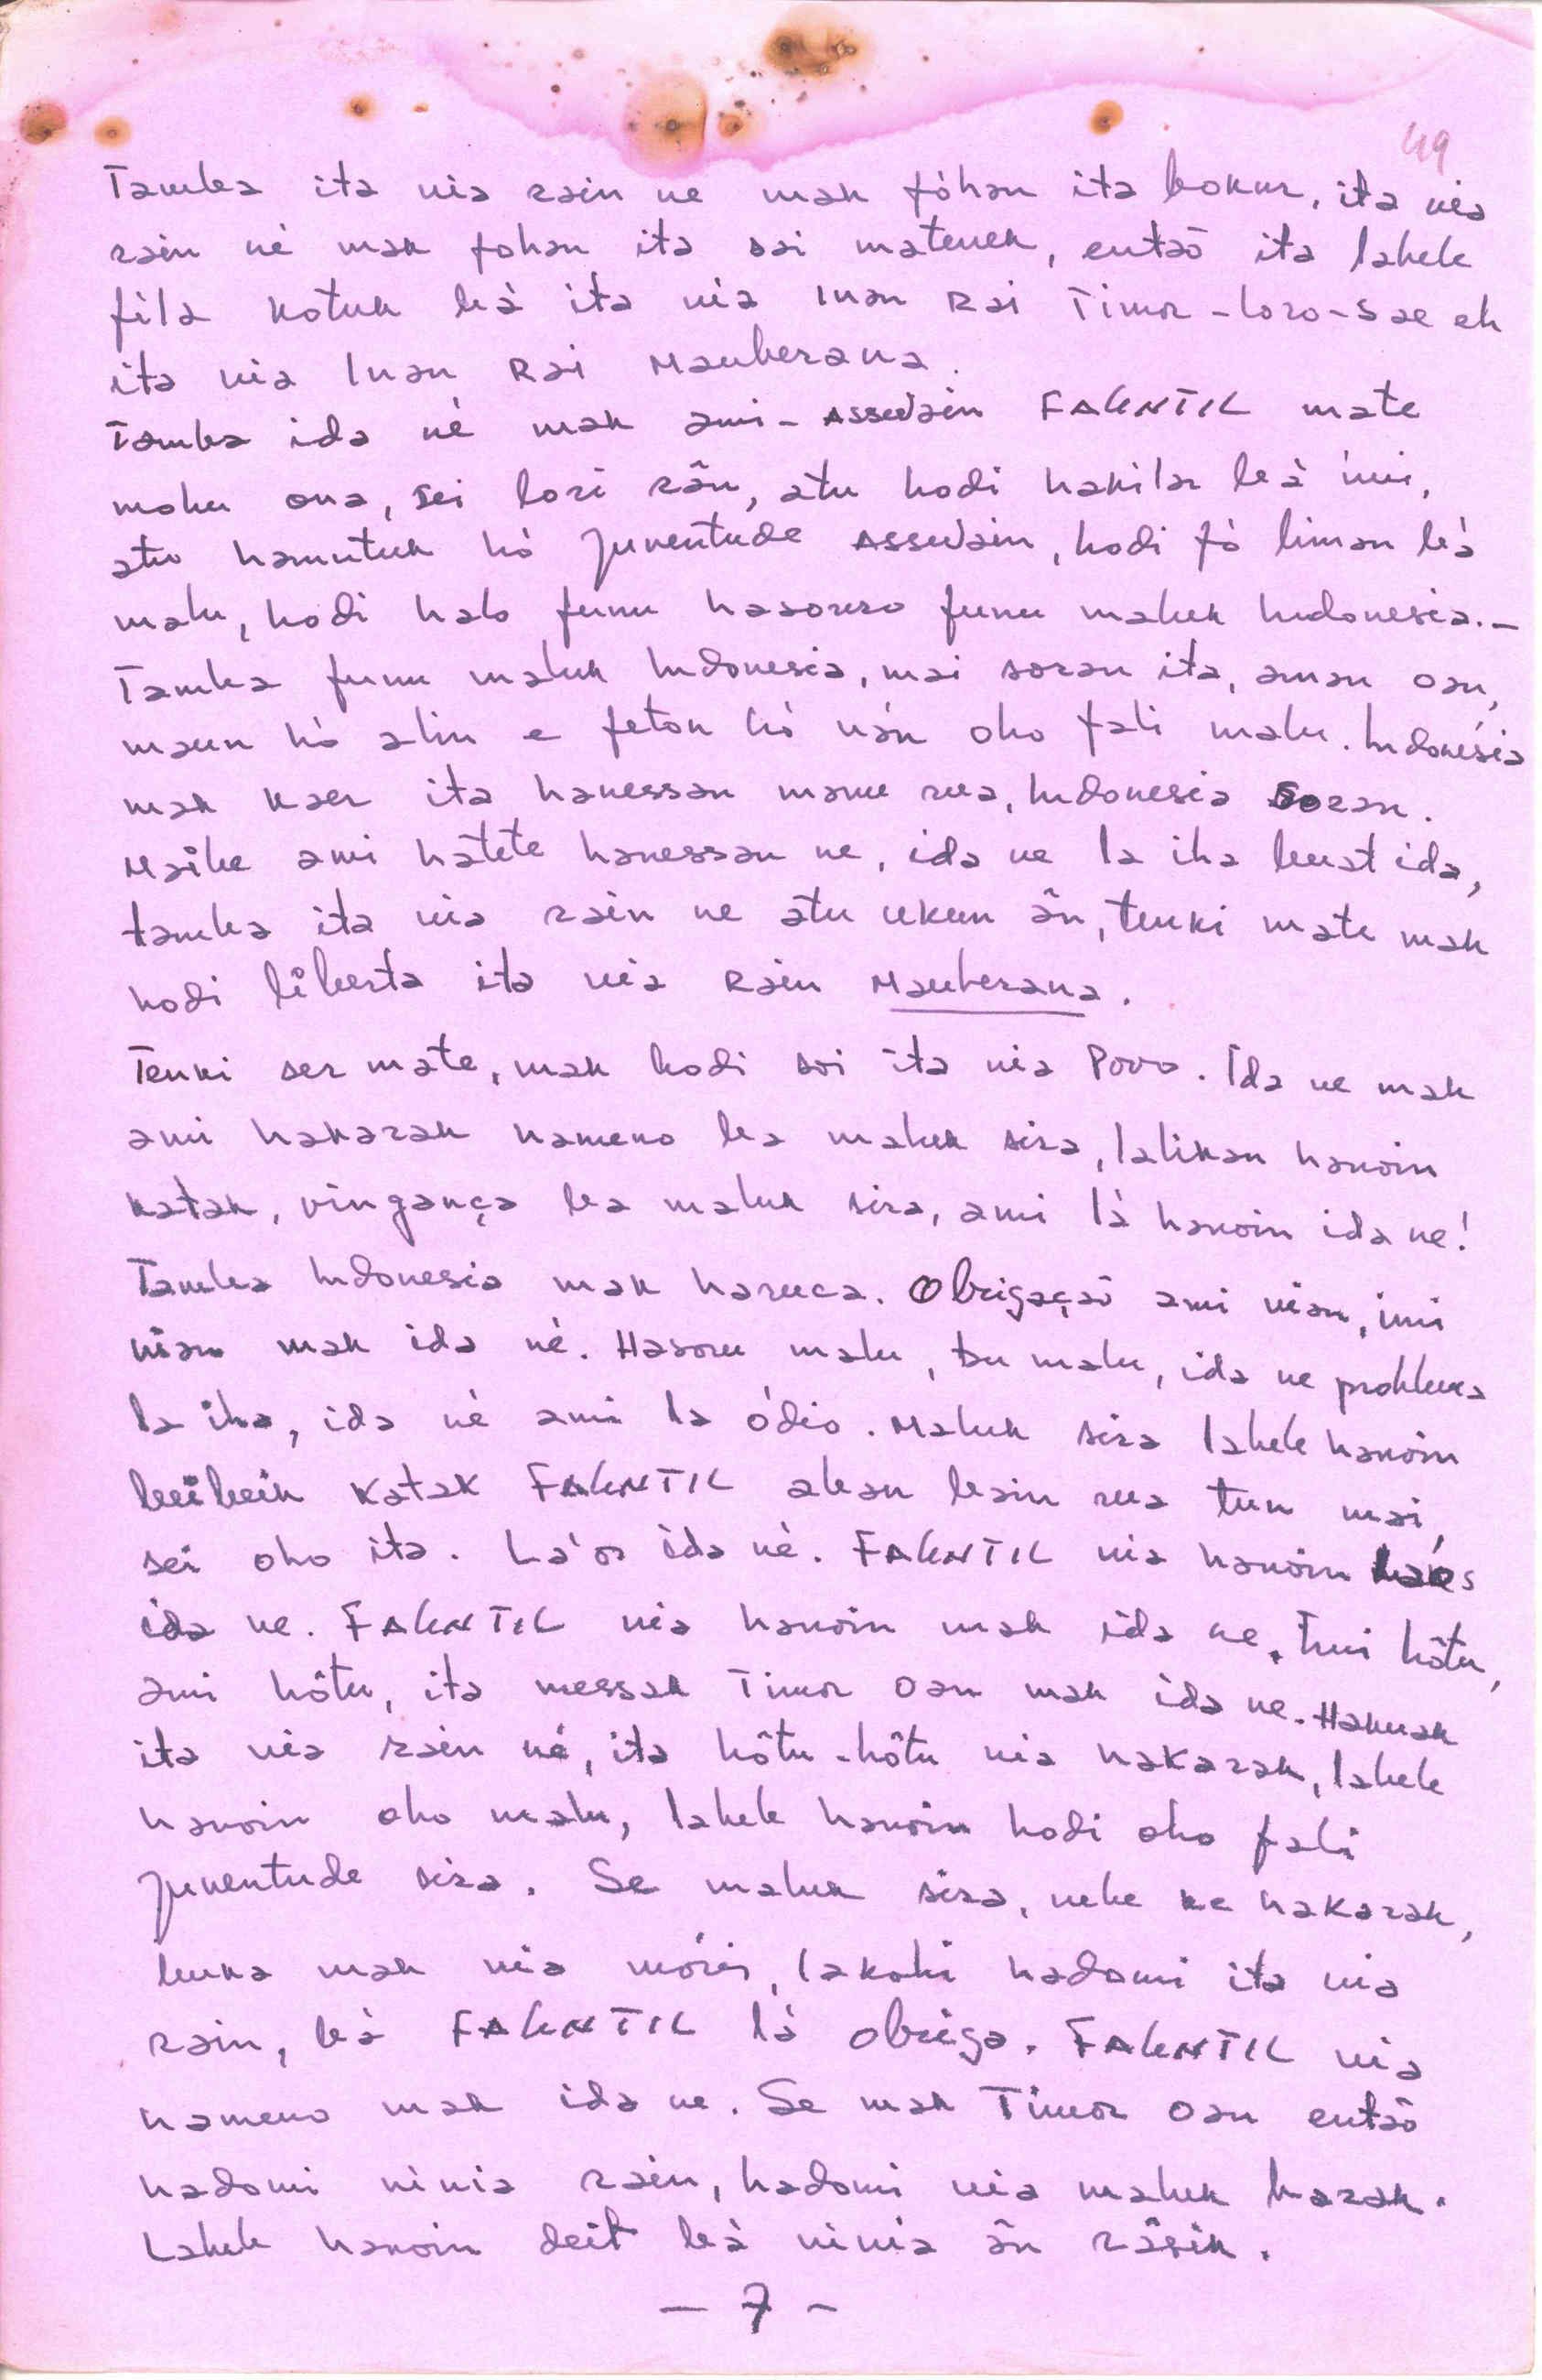 49
Tamba ita nia rain ne mak fóhan ita bokur, ita nia
rain né mak fohan ita sai matenek, entaõ ita labele
fila kotuk bá ita nia Inan Rai Timor-Loro-Sae eh
ita nia Inan Rai Mauberana.
Tamba ida né mak ami - Assuwain FALINTIL mate
mohu ona, sei lori rân, atu hodi hakilar bá imi,
atu hamutuk hó juventude Assuwain, hodi fó liman bá
malu, hodi halo funu hasouro funu maluk Indonesia.-
Tamba funu maluk Indonesia, mai soran ita, aman oan,
maun hó alin e feton hó nán oho fali malu. Indonésia
mak kaer ita hanessan manu rua, Indonesia soran.
Maibe ami hatete hanessan ne, ida ne la iha buat ida,
tamba ita nia rain ne atu ukun ân, tenki mate mak
hodi liberta ita nia Rain Mauberana.
Tenki ser mate, mak hodi soi ita nia Povo. Ida ne mak
ami hakarak hameno ba maluk sira, lalikan hanoin
katak, vingança ba maluk sira, ami lá hanoin ida ne!
Tamba Indonesia mak haruca. Obrigaçaõ ami nian, imi
nian mak ida né. Hasoru malu, tu malu, ida ne problema
la iha, ida né ami la ódio. Maluk sira labele hanoin
beibeik katak FALINTIL aban bain rua tun mai,
sei oho ita. La'os ida né. FALINTIL nia hanoin laós
ida ne. FALINTIL nia hanoin mak ida ne. Imi hôtu,
ami hôtu, ita messak Timor oan mak ida ne. Hakuak
ita nia rain né, ita hôtu-hôtu nia hakarak, labele
hanoin oho malu, labele hanoin hodi oho fali
juventude sira. Se maluk sira, nebe ke hakarak,
buka mak nia móris, lakohi hadomi ita nia
rain, bá FALINTIL lá obriga. FALINTIL nia
hameno mak ida ne. Se mak Timor oan entaõ
hadomi ninia rain, hadomi nia maluk barak.
Labele hanoin deit bá ninia ân râsik.
- 7 -